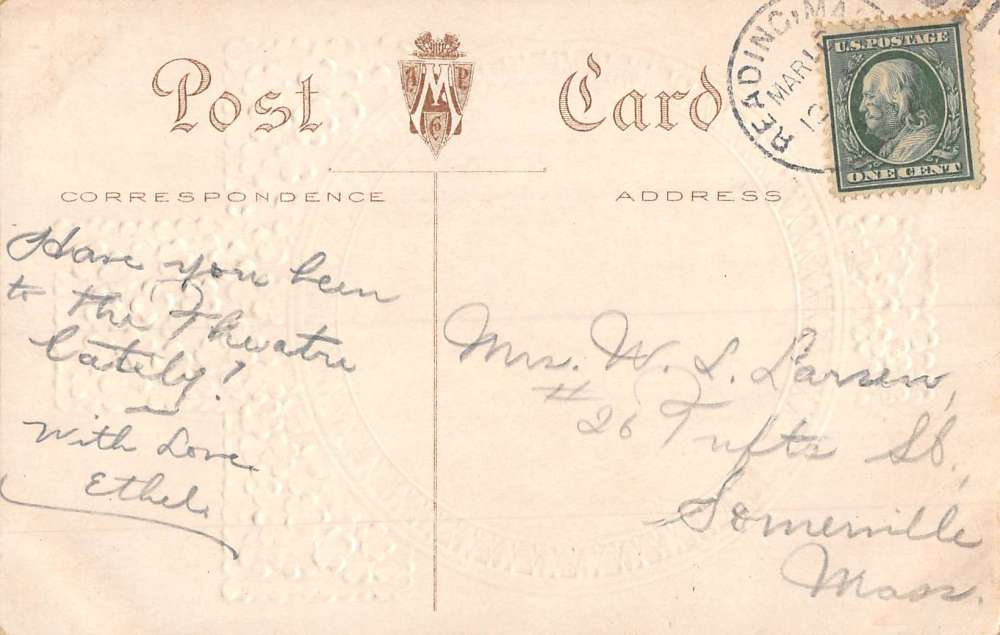 Post Card
A M P
6
CORRESPONDENCE
ADDRESS
READING, MA
MAR
U.S. POSTAGE
ONE CENT
Have you been
to the Theatre
lately?
With Love
Ethel.
Mrs. W. L. Larsen,
# 26 Tufts St,
Somerville
Mass.